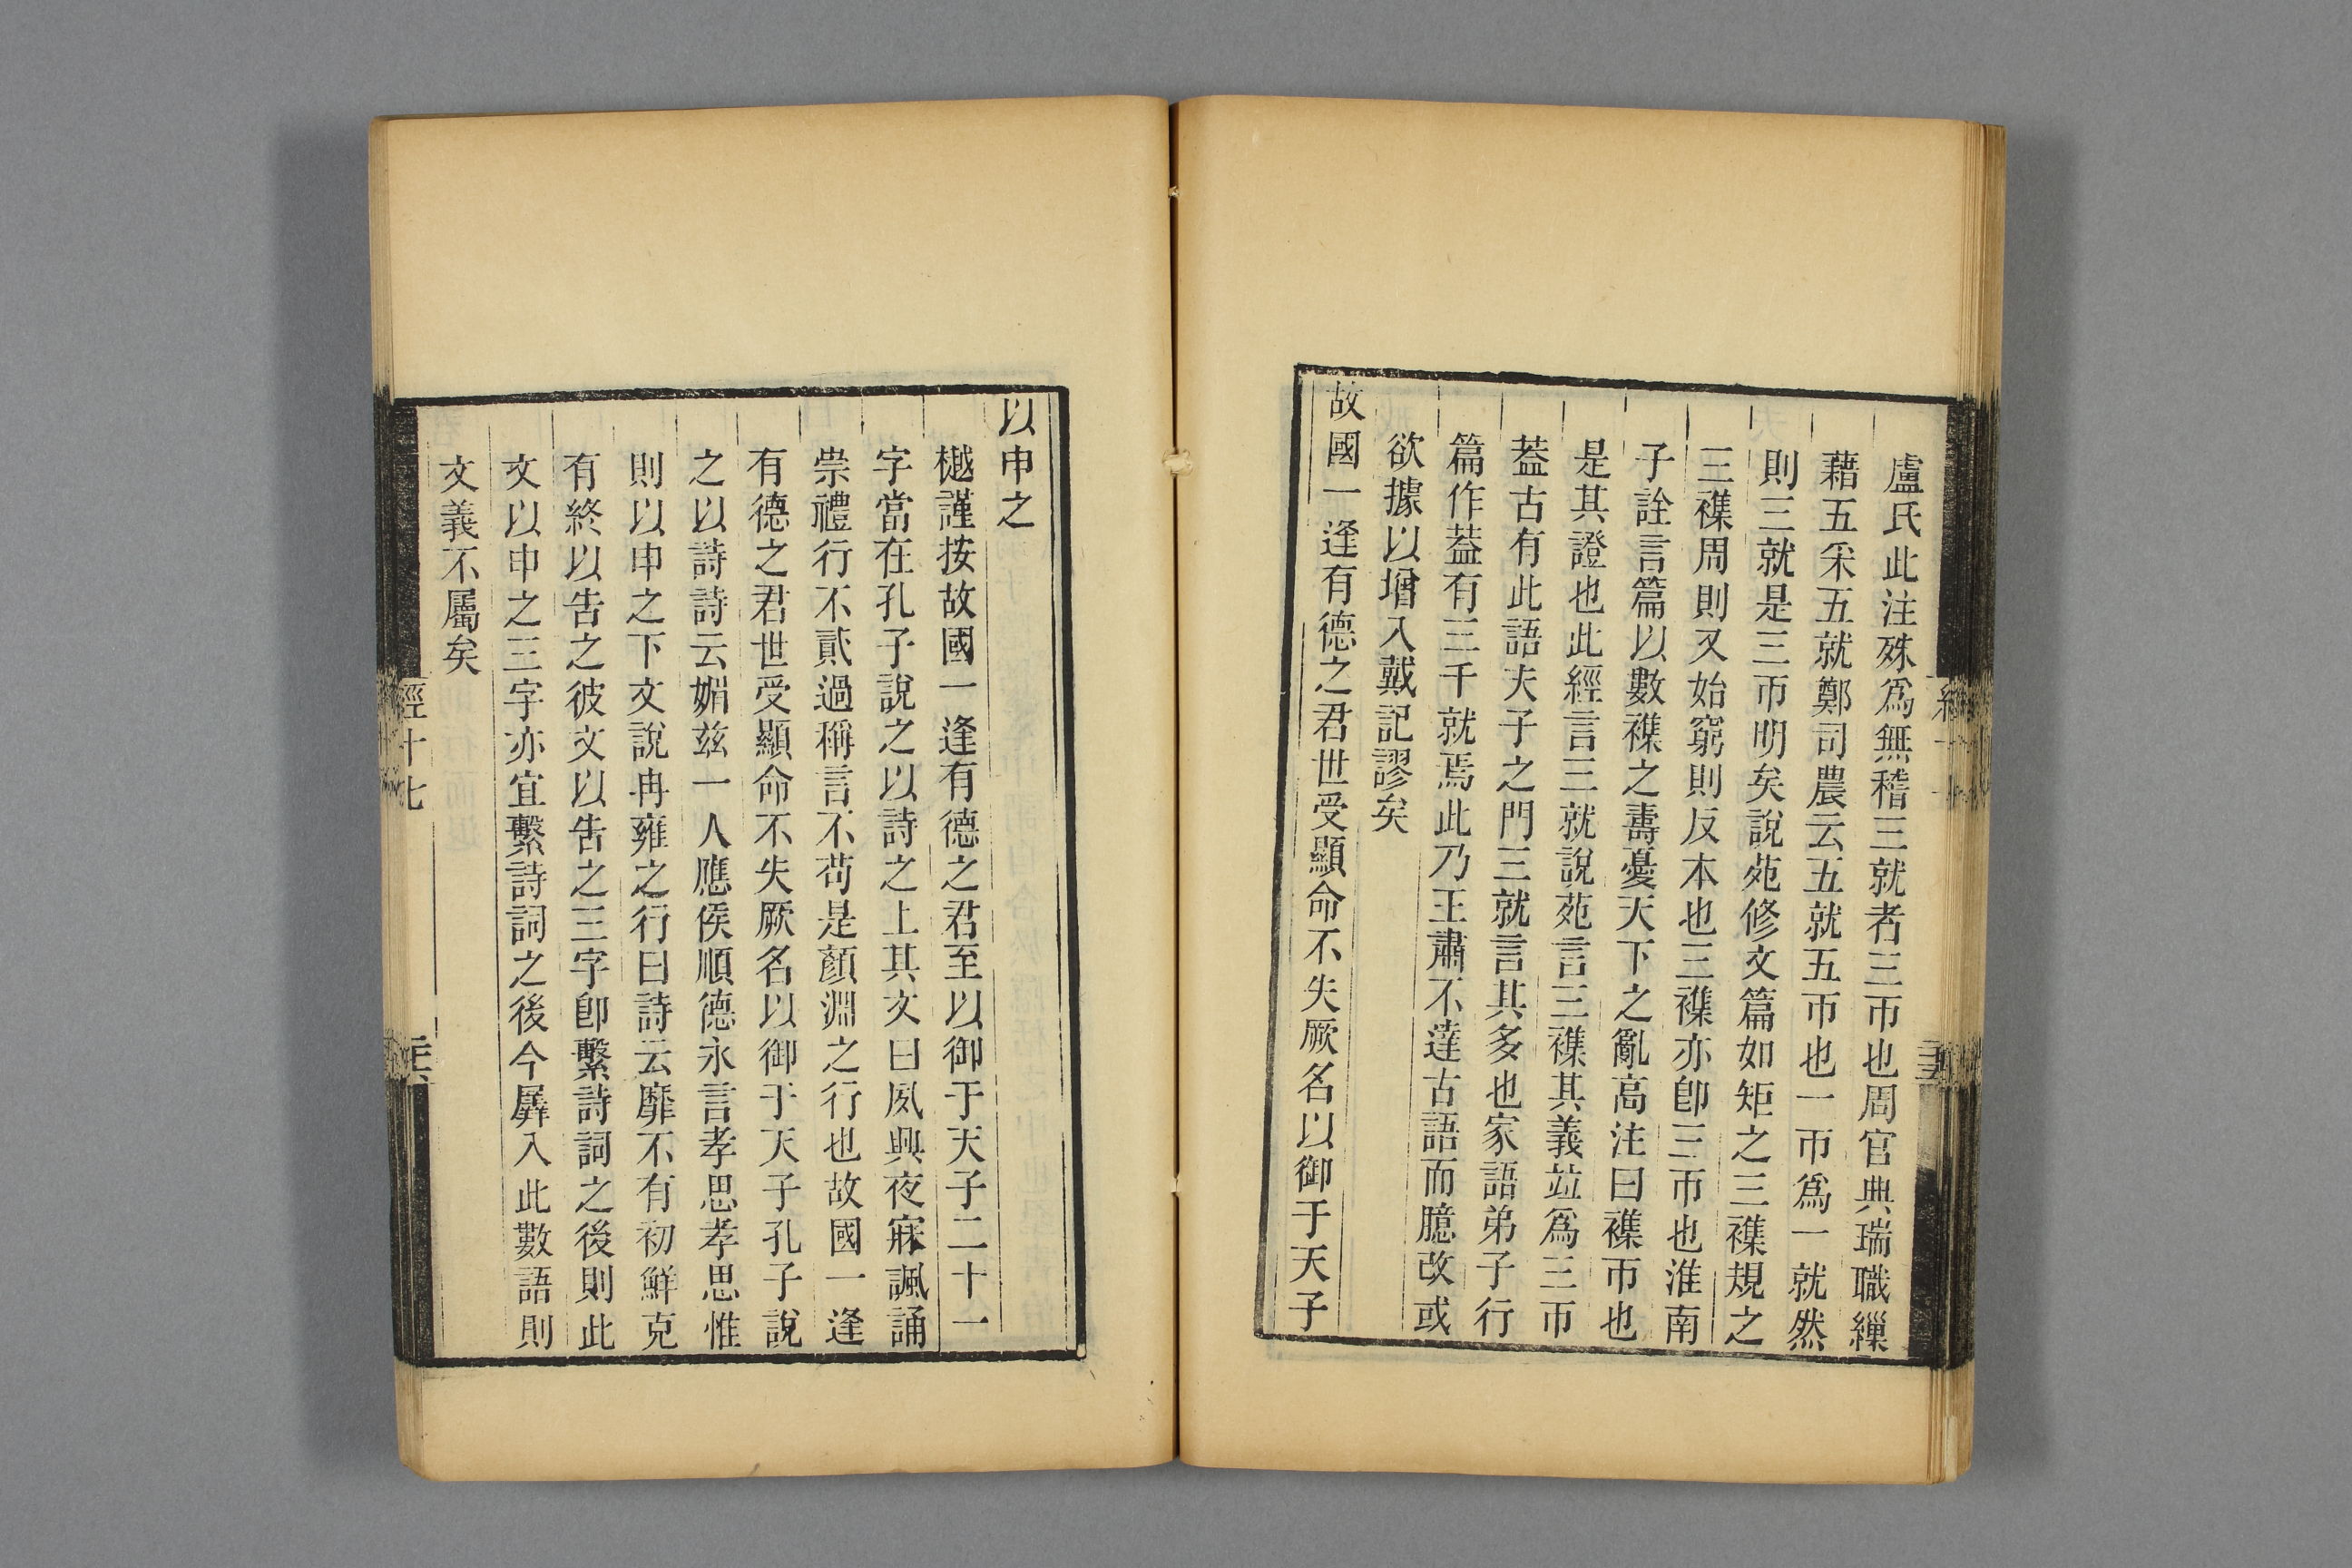 盧氏此注殊爲無稽三就者三帀也周官典瑞職繅
藉五采五就鄭司農云五就五帀也一帀爲一就然
則三就是三帀明矣說苑修文篇如矩之三襍規之
三襍周則又始窮則反本也三襍亦卽三帀也淮南
子詮言篇以數襍之壽憂天下之亂高注曰襍帀也
是其證也此經言三就說苑言三襍其義竝爲三帀
葢古有此語夫子之門三就言其多也家語弟子行
篇作葢有三千就焉此乃王肅不達古語而臆改或
欲據以增入戴記謬矣
故國一逢有德之君世受顯命不失厥名以御于天子
以申之
樾謹按故國一逢有德之君至以御于天子二十一
字當在孔子說之以詩之上其文曰夙興夜寐諷誦
崇禮行不貳過稱言不苟是顏淵之行也故國一逢
有德之君世受顯命不失厥名以御于天子孔子說
之以詩詩云媚兹一人應侯順德永言孝思孝思惟
則以申之下文說冉雍之行曰詩云靡不有初鮮克
有終以告之彼文以告之三字卽繫詩詞之後則此
文以申之三字亦宜繫詩詞之後今羼入此數語則
文義不屬矣
經十七